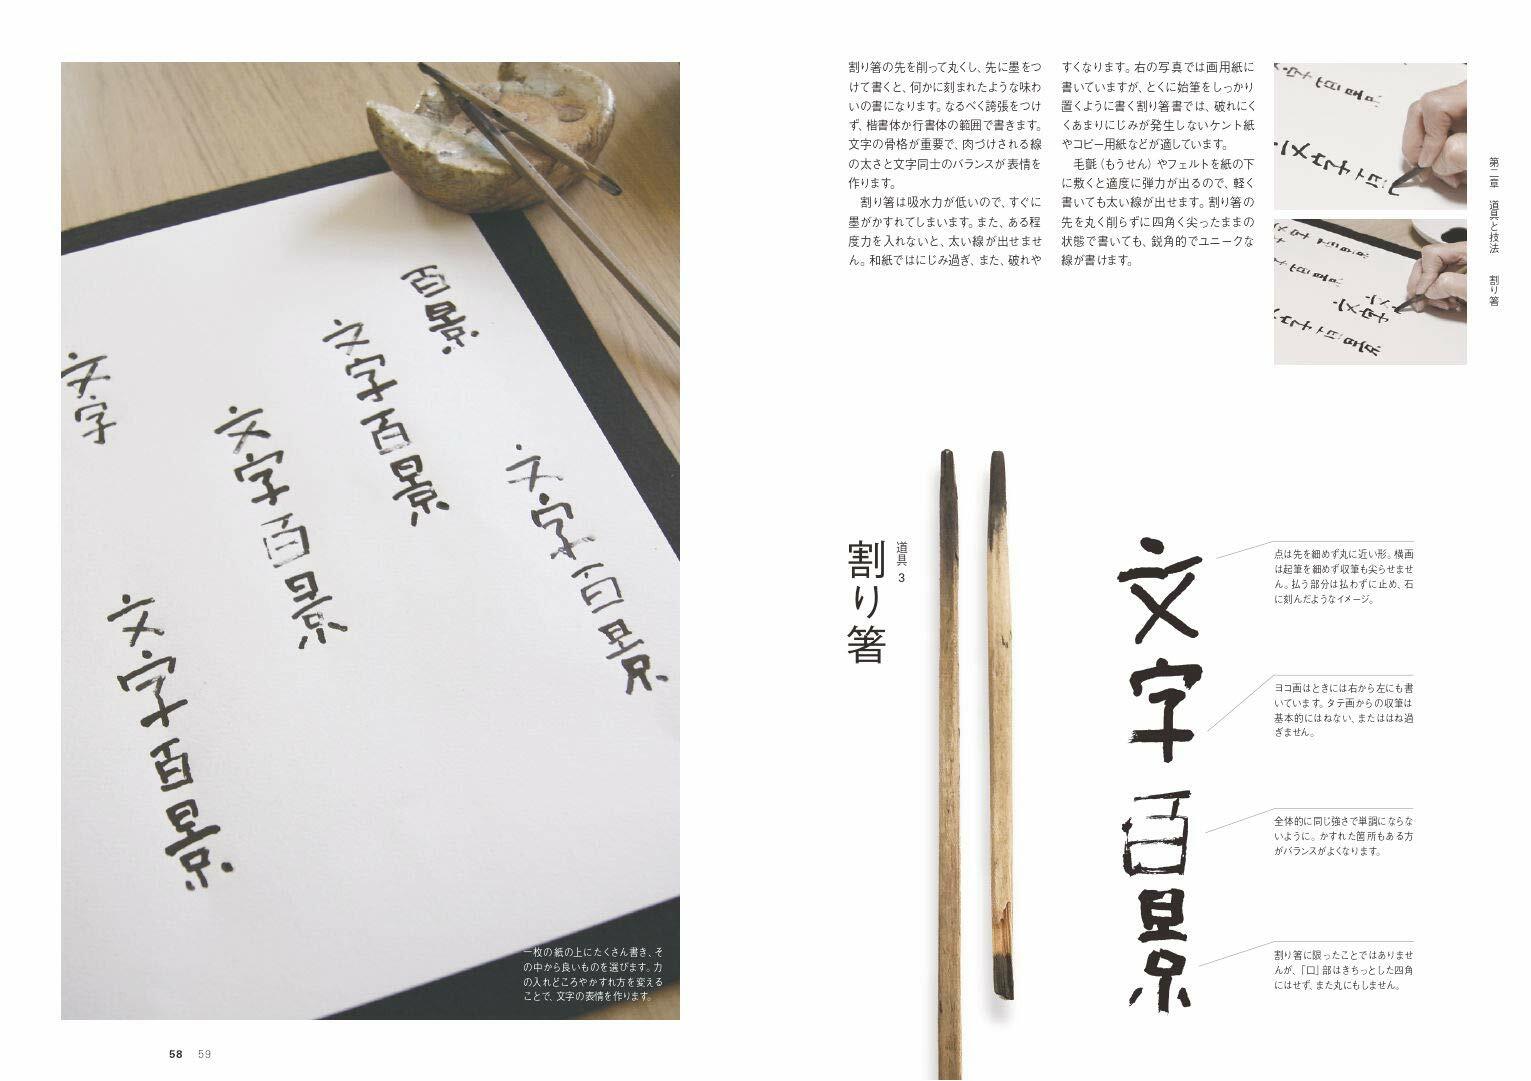 割り箸の先を削って丸くし、先に墨をつ
けて書くと、何かに刻まれたような味わ
いの書になります。なるべく誇張をつけ
ず、楷書体か行書体の範囲で書きます。
文字の骨格が重要で、肉づけされる線
の太さと文字同士のバランスが表情を
作ります。
割り箸は吸水力が低いので、すぐに
墨がかすれてしまいます。また、ある程
度力を入れないと、太い線が出せませ
ん。和紙ではにじみ過ぎ、また、破れや
すくなります。右の写真では画用紙に
書いていますが、とくに始筆をしっかり
置くように書く割り箸書では、破れにく
くあまりにじみが発生しないケント紙
やコピー用紙などが適しています。
毛氈（もうせん）やフェルトを紙の下
に敷くと適度に弾力が出るので、軽く
書いても太い線が出せます。割り箸の
先を丸く削らずに四角く尖ったままの
状態で書いても、鋭角的でユニークな
線が書けます。
第二章 道具と技法 割り箸
道具 3
割り箸
文字百景
点は先を細めず丸に近い形。横画
は起筆を細めず収筆も尖らせませ
ん。払う部分は払わずに止め、石
に刻んだようなイメージ。
ヨコ画はときには右から左にも書
いています。タテ画からの収筆は
基本的にはねない、またははね過
ぎません。
全体的に同じ強さで単調にならな
いように。かすれた箇所もある方
がバランスがよくなります。
割り箸に限ったことではありませ
んが、「口」部はきちっとした四角
にはせず、また丸にもしません。
文字百景
百景
文字百景
文字百景
文字
文字百景
一枚の紙の上にたくさん書き、そ
の中から良いものを選びます。力
の入れどころやかすれ方を変える
ことで、文字の表情を作ります。
58 59